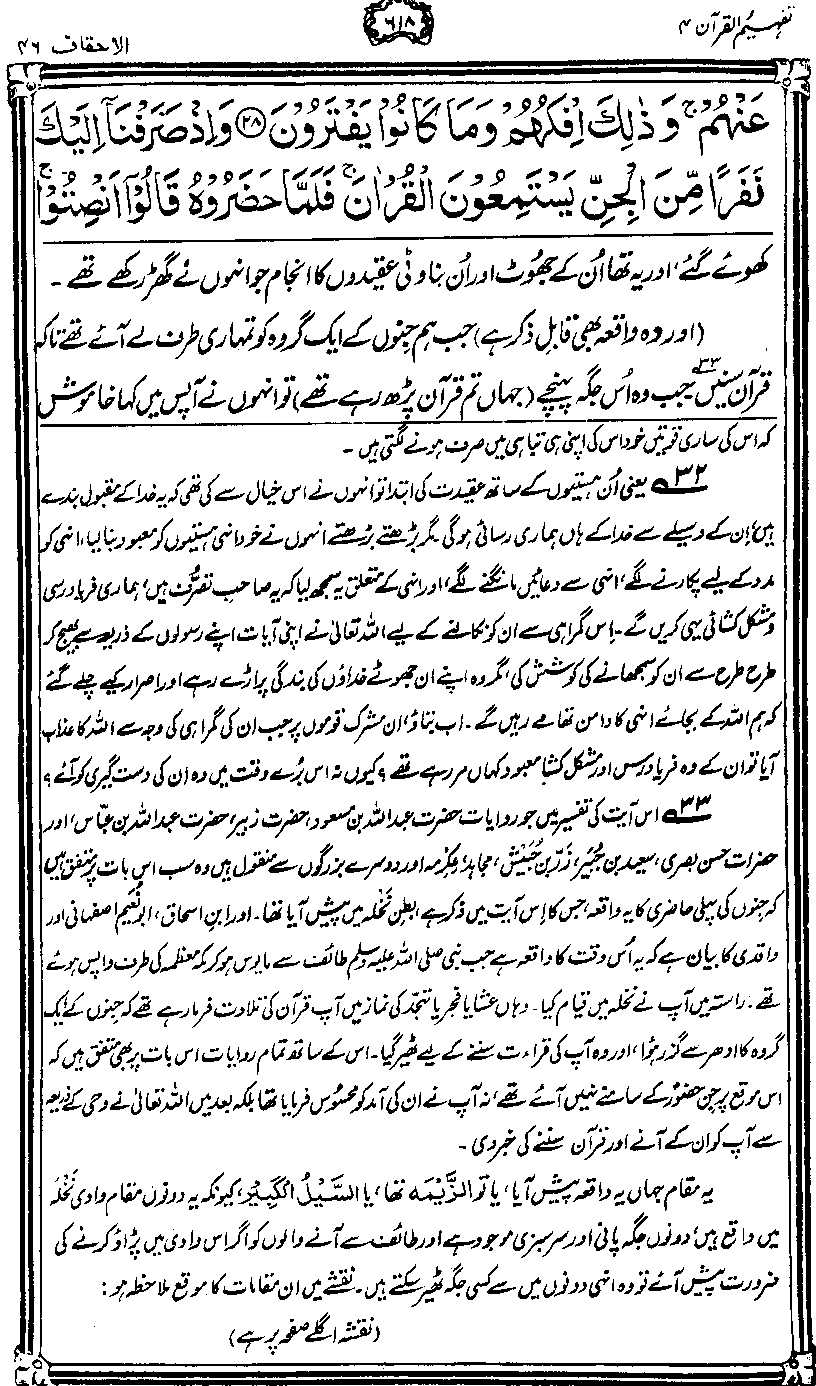 تفہیم القرآن ۴
۶۱۸
الاحقاف ۴۶
عَنْهُمْ ۚ وَذٰلِكَ اِفْكُهُمْ وَمَا كَانُوْا يَفْتَرُوْنَ ﴿۲۸﴾ وَاِذْ صَرَفْنَآ اِلَيْكَ
نَفَرًا مِّنَ الْجِنِّ يَسْتَمِعُوْنَ الْقُرْاٰنَ ۚ فَلَمَّا حَضَرُوْهُ قَالُوْٓا اَنْصِتُوْا ۚ
کھوئے گئے، اور یہ تھا اُن کے جھوٹ اور اُن بناوٹی عقیدوں کا انجام جو انہوں نے گھڑ رکھے تھے۔
(اور وہ واقعہ بھی قابلِ ذکر ہے) جب ہم جنوں کے ایک گروہ کو تمہاری طرف لے آئے تھے تاکہ
قرآن سنیں۔۳۳ جب وہ اُس جگہ پہنچے (جہاں تم قرآن پڑھ رہے تھے) تو انہوں نے آپس میں کہا خاموش
کہ اس کی ساری قوتیں خود اس کی اپنی ہی تباہی میں صرف ہونے لگتی ہیں۔
۳۲ یعنی اُن ہستیوں کے ساتھ عقیدت کی ابتدا تو انہوں نے اس خیال سے کی تھی کہ یہ خدا کے مقبول بندے
ہیں، اِن کے وسیلے سے خدا کے ہاں ہماری رسائی ہوگی۔ مگر بڑھتے بڑھتے انہوں نے خود انہی ہستیوں کو معبود بنا لیا، انہی کو
مدد کے لیے پکارنے لگے، انہی سے دعائیں مانگنے لگے، اور انہی کے متعلق یہ سمجھ لیا کہ یہ صاحبِ تصرُّف ہیں، ہماری فریاد رسی
و مشکل کشائی یہی کریں گے۔ اِس گمراہی سے ان کو نکالنے کے لیے اللہ تعالیٰ نے اپنی آیات اپنے رسولوں کے ذریعہ سے بھیج کر
طرح طرح سے ان کو سمجھانے کی کوشش کی، مگر وہ اپنے ان جھوٹے خداؤں کی بندگی پر اڑے رہے اور اصرار کیے چلے گئے
کہ ہم اللہ کے بجائے انہی کا دامن تھامے رہیں گے۔ اب بتاؤ، ان مشرک قوموں پر جب ان کی گمراہی کی وجہ سے اللہ کا عذاب
آیا تو ان کے وہ فریاد رس اور مشکل کشا معبود کہاں مر رہے تھے؟ کیوں نہ اس بُرے وقت میں وہ ان کی دست گیری کو آئے؟
۳۳ اس آیت کی تفسیر میں جو روایات حضرت عبداللہ بن مسعود، حضرت زبیر، حضرت عبداللہ بن عبّاس، اور
حضرات حسن بصری، سعید بن جُبَیر، زَرّ بن حُبَیش، مجاہد، عِکرِمہ اور دوسرے بزرگوں سے منقول ہیں وہ سب اس بات پر متفق ہیں
کہ جنوں کی پہلی حاضری کا یہ واقعہ، جس کا اِس آیت میں ذکر ہے، بطنِ نَخْلہ میں پیش آیا تھا۔ اور ابنِ اسحاق، ابو نُعیم اصفہانی اور
واقدی کا بیان ہے کہ یہ اُس وقت کا واقعہ ہے جب نبی صلی اللہ علیہ وسلم طائف سے مایوس ہو کر مکہ معظمہ کی طرف واپس ہوئے
تھے۔ راستہ میں آپ نے نخلہ میں قیام کیا۔ وہاں عشا یا فجر یا تہجّد کی نماز میں آپ قرآن کی تلاوت فرما رہے تھے کہ جنوں کے ایک
گروہ کا ادھر سے گذر ہؤا، اور وہ آپ کی قراءت سننے کے لیے ٹھیر گیا۔ اس کے ساتھ تمام روایات اس بات پر بھی متفق ہیں کہ
اس موقع پر جن حضورؐ کے سامنے نہیں آئے تھے، نہ آپ نے ان کی آمد کو محسوس فرمایا تھا بلکہ بعد میں اللہ تعالیٰ نے وحی کے ذریعہ
سے آپ کو ان کے آنے اور قرآن سننے کی خبر دی۔
یہ مقام جہاں یہ واقعہ پیش آیا، یا تو الزَّیْمہ تھا، یا السَّیْلُ الْکَبِیْر، کیونکہ یہ دونوں مقام وادی نَخْلَہ
میں واقع ہیں، دونوں جگہ پانی اور سرسبزی موجود ہے اور طائف سے آنے والوں کو اگر اس وادی میں پڑاؤ کرنے کی
ضرورت پیش آئے تو وہ انہی دونوں میں سے کسی جگہ ٹھیر سکتے ہیں۔ نقشے میں ان مقامات کا موقع ملاحظہ ہو:
(نقشہ اگلے صفحہ پر ہے)